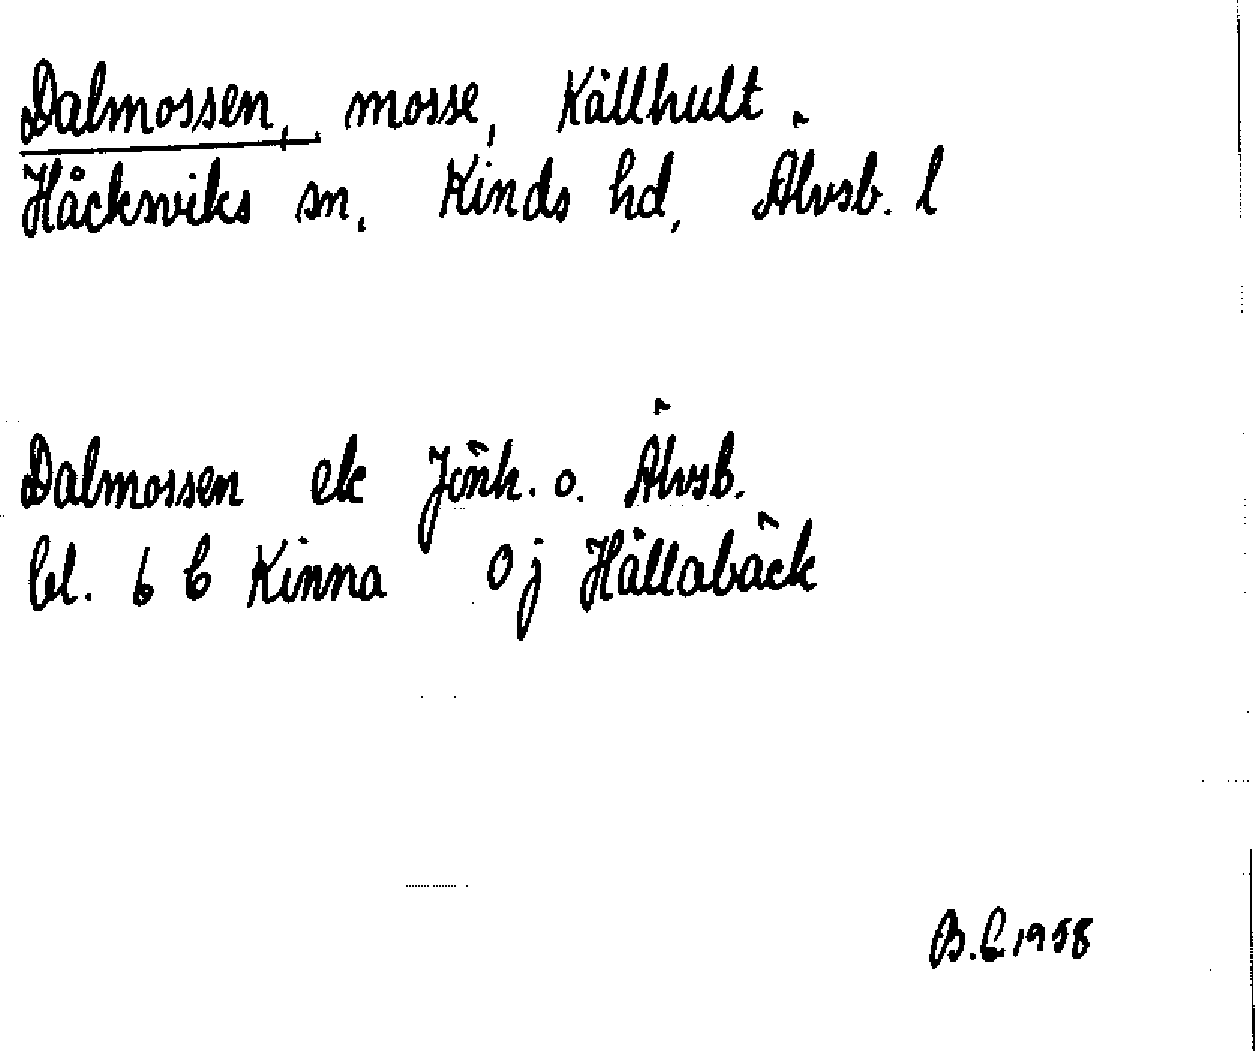 Dalmossen, mosse, Källhult.
Håcksviks sn, Kinds hd, Älvsb. l
Dalmossen ek Jönk. o. Älvsb.
bl. 6 b Kinna 0j Hållabäck
B.L 1958